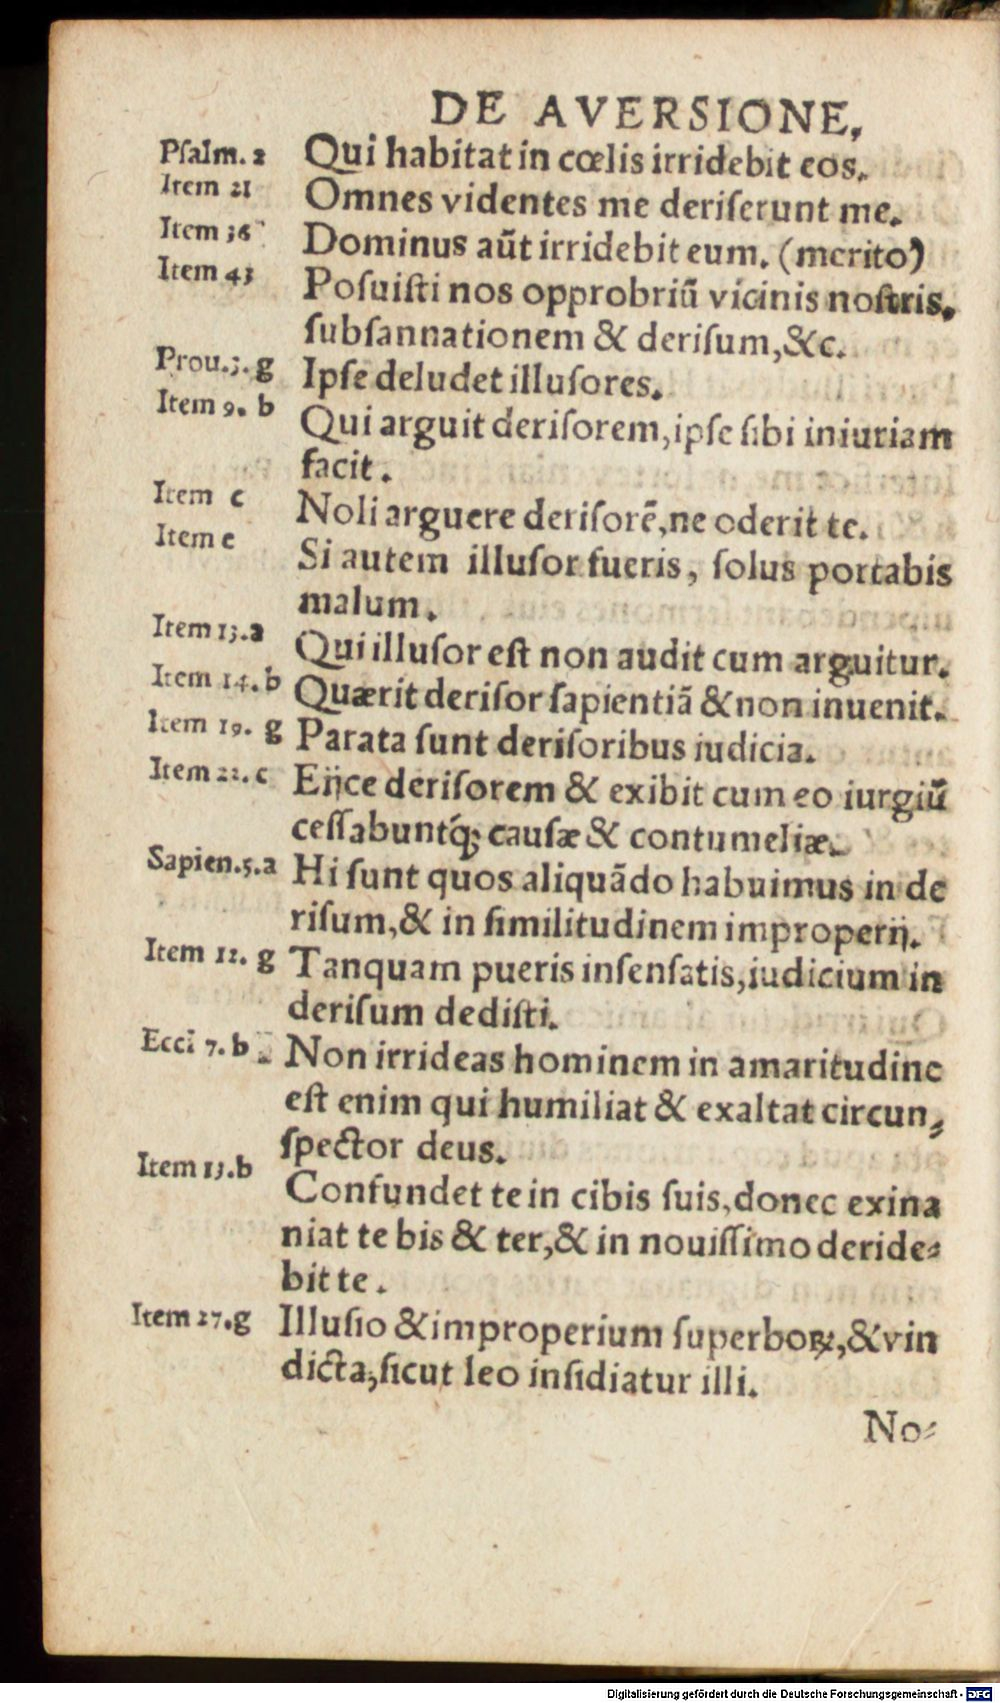 DE AVERSIONE,
Psalm. 2 Qui habitat in cœlis irridebit eos.
Item 21 Omnes videntes me deriserunt me.
Item 36 Dominus aūt irridebit eum. (merito)
Item 43 Posuisti nos opprobriū vicinis nostris,
subsannationem & derisum,&c.
Prou.3. g Ipse deludet illusores.
Item 9. b Qui arguit derisorem,ipse sibi iniuriam
facit.
Item c Noli arguere derisorē,ne oderit te.
Item e Si autem illusor fueris, solus portabis
malum.
Item 13.a Qui illusor est non audit cum arguitur.
Item 14.b Quærit derisor sapientiā & non inuenit.
Item 19. g Parata sunt derisoribus iudicia.
Item 22.c Eijce derisorem & exibit cum eo iurgiū
cessabuntq́; causæ & contumeliæ.
Sapien.5.a Hi sunt quos aliquādo habuimus in de
risum,& in similitudinem improperij.
Item 12. g Tanquam pueris insensatis,iudicium in
derisum dedisti.
Eccī 7. b Non irrideas hominem in amaritudine
est enim qui humiliat & exaltat circun⸗
spector deus.
Item 13.b Confundet te in cibis suis,donec exina
niat te bis & ter,& in nouissimo deride⸗
bit te.
Item 27.g Illusio & improperium superboꝝ,& vin
dicta,sicut leo insidiatur illi.
No⸗
Digitalisierung gefördert durch die Deutsche Forschungsgemeinschaft - DFG